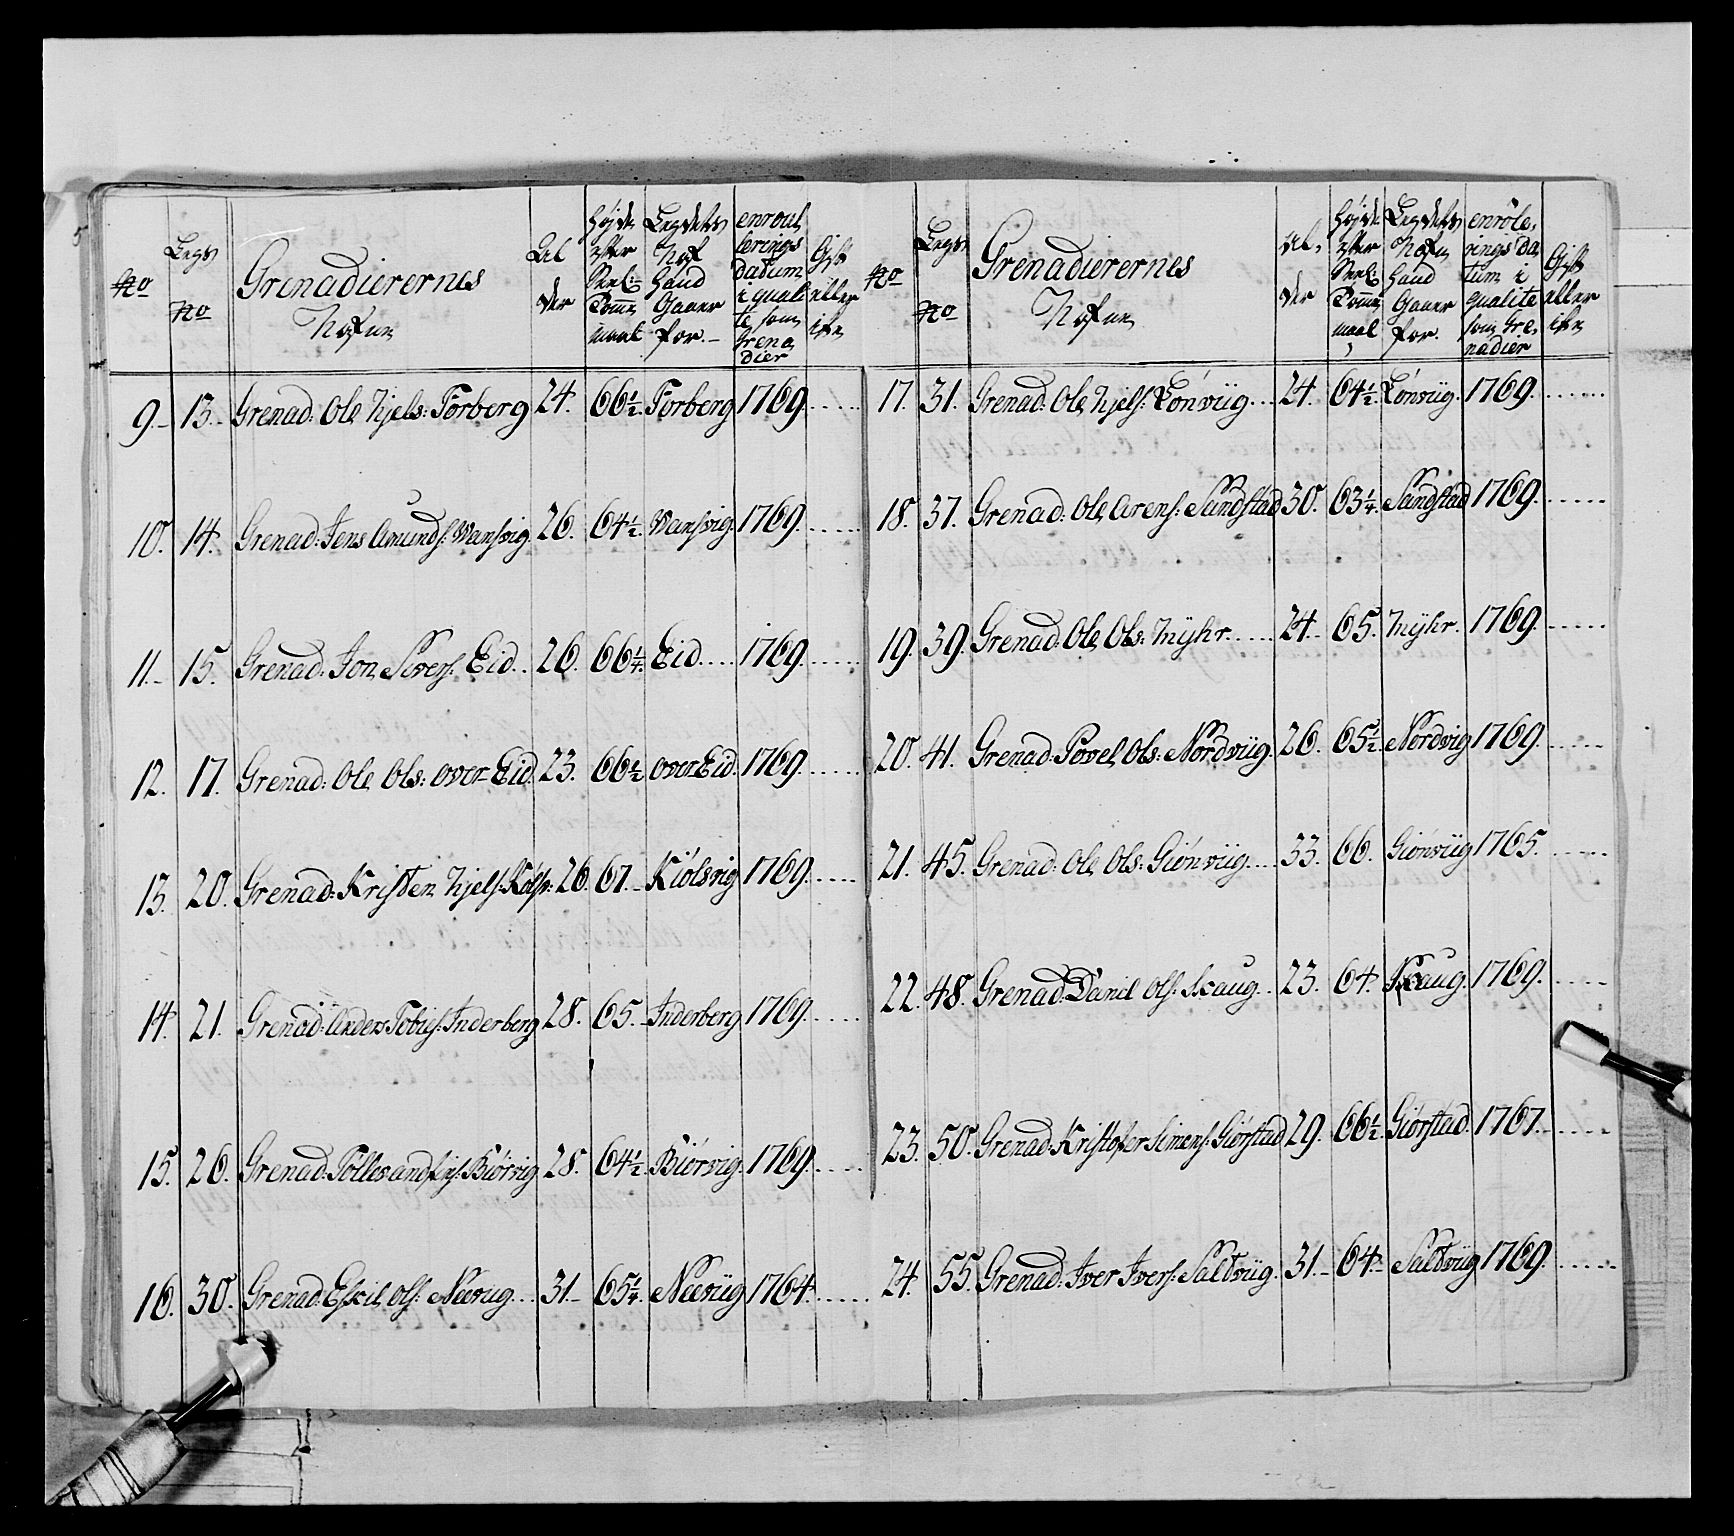 No
Legs No
Grenadierernes Nafne
Al der
Højde efter Rul: Comme maal
Legdets Nafn hand Gaaer for.
enroul lerings datum i quali te som Grena dier
Gift eller ike
9. 13. Grenad: Ole Njels: Forberg 24. 66½ Forberg 1769.
10. 14. Grenad: Jens Amunds: Wansvig. 26. 64½. Wansvig. 1769.
11. 15. Grenad: Jon Sivers: Eid. 26. 66¼. Eid 1769.
12. 17. Grenad: Ole Ols: over-Eid 23. 66½ over Eid. 1769.
13. 20. Grenad: Kristen Njels: Kølsv: 26. 67. Kiölsvig 1769.
14. 21. Grenad: Anders Tobies: Inderberg 28. 65. Inderberg 1769.
15. 26. Grenad: Biørvig 28. 64½ Biørvig. 1769.
16. 30. Grenad: Eskil Ols: Næevug 31. 65¼. Næeviig 1764.
No
Legs No
Grenadierernes Nafne
Al, der
Højde efter Comme maal
Legdets Nafn hand Gaaer for.
enröle, rings da, tum i qualite som Gre, nadier
Gift eller ike
17. 31. Grenad: Ole Njels: Lönviig. 24. 64½. Lönviig. 1769.
18. 37. Grenad: Ole Arens: Sandstad 30. 63¼. Sandstad 1769.
19. 39. Grenad: Ole Ols: Mÿhr. 24. 65. Mÿhr. 1769.
20. 41. Grenad: Povel Ols: Nordviig. 26. 65½. Nordvig 1769.
21. 45. Grenad: Ole Ols: Giönviig. 33. 66. Giönviig 1765.
22. 48. Grenad: Daniel Ols: Skaug. 23. 64. Skaug. 1769.
23. 50. Grenad: Kristofer Simens: Giörstad 29. 66½ Giörstad. 1767.
24. 55. Grenad: Iver Ivers: Saltviig. 31. 64. Saltviig 1769.